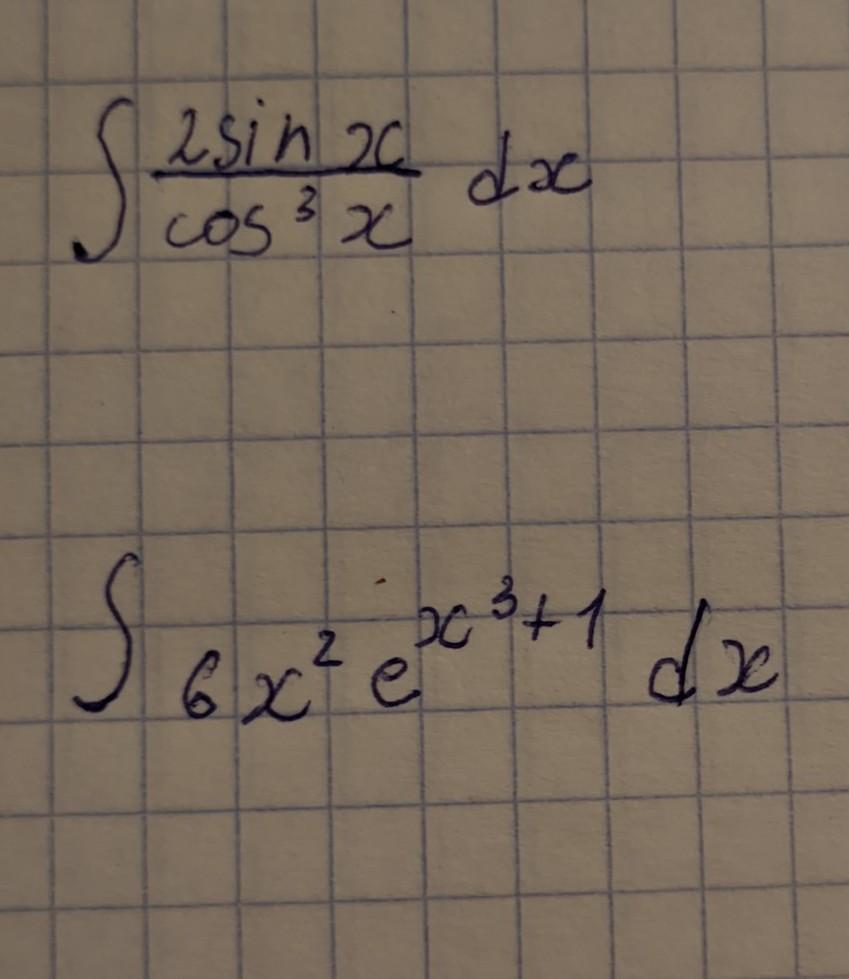 ∫ 2sin x / cos³ x dx
∫ 6x² e^(x³+1) dx